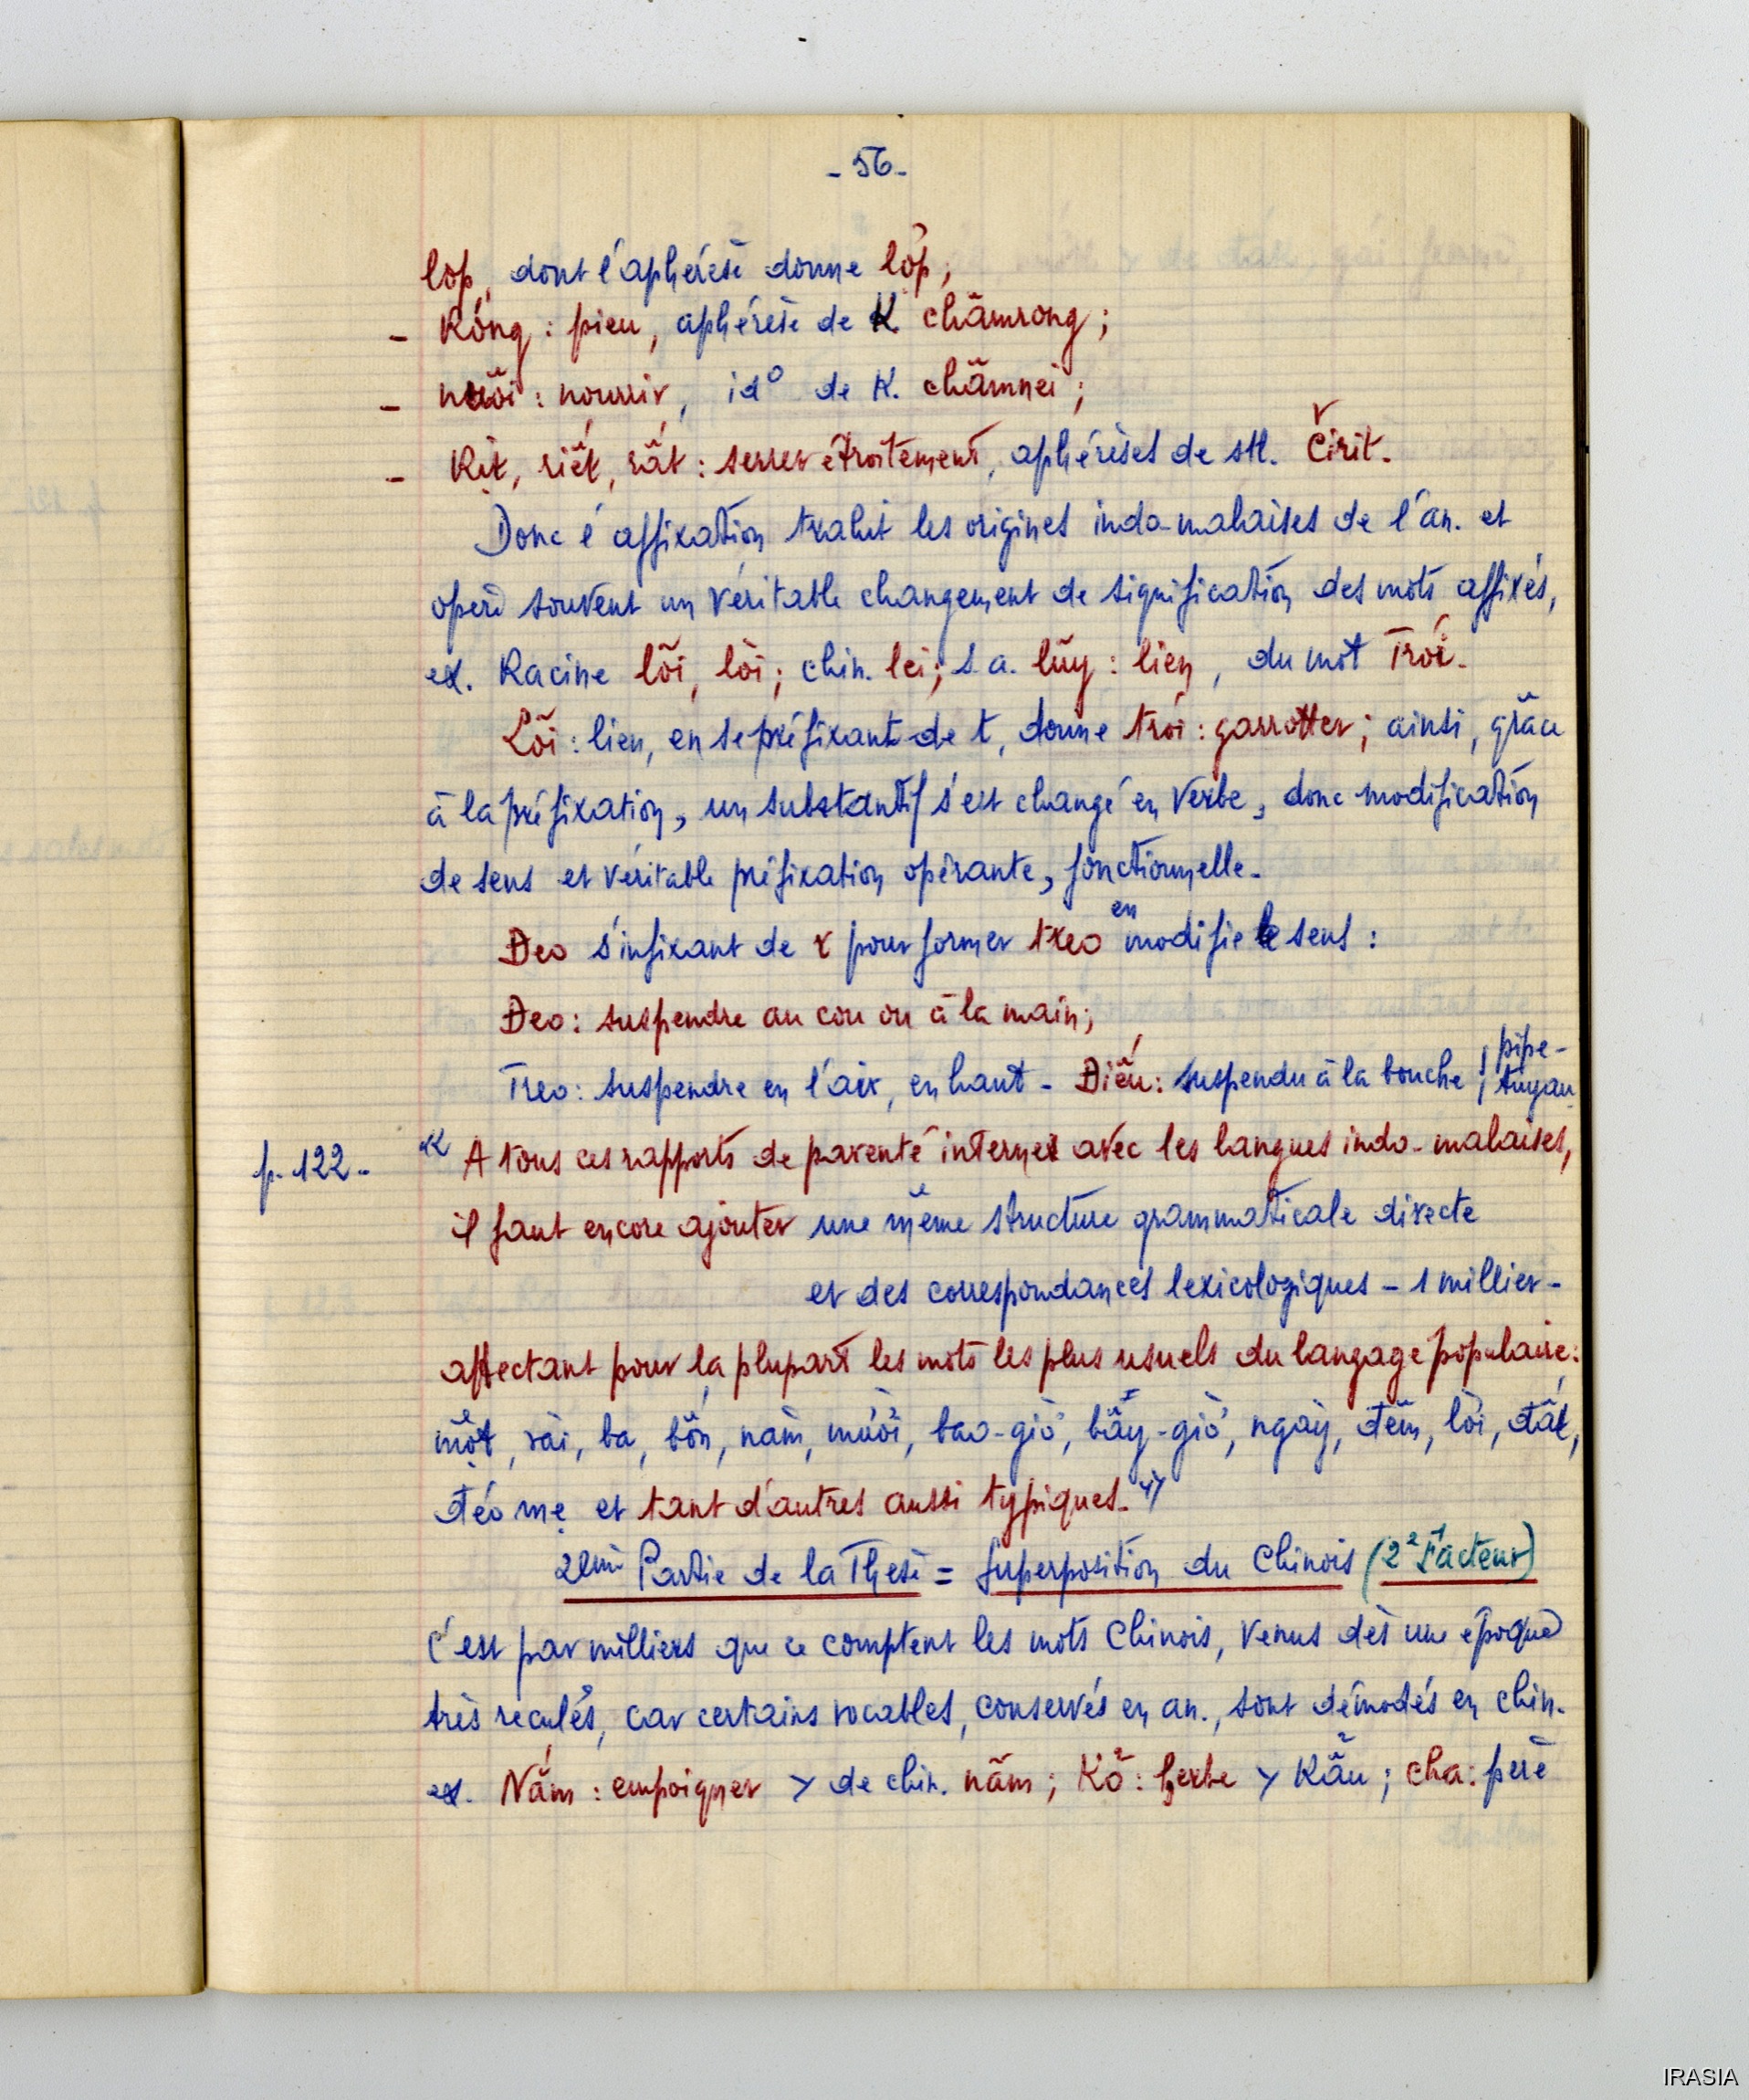 - 56 -
lop, dont l'aphérèse donne lớp;
- Róng : pieu, aphérèse de K. châmrong;
- nuôi : nourrir, id° de K. chămnei;
- Rịt, riết, rất : serrer étroitement, aphérèses de stl. čirit.
Donc l'affixation trahit les origines indo-malaises de l'an. et
opère souvent un véritable changement de signification des mots affixés,
ex. Racine lõi, lòi; chin. lei; s.a. lũy : lien, du mot Trói.
Lõi : lien, en se préfixant de t, donne trói : garrotter; ainsi, grâce
à la préfixation, un substantif s'est changé en verbe, donc modification
de sens et véritable préfixation opérante, fonctionnelle.
Đeo s'infixant de r pour former treo en modifie le sens :
Đeo : suspendre au cou ou à la main;
Treo : suspendre en l'air, en haut - Điếu : suspendu à la bouche; pipe- tuyau
p. 122 - « A tous ces rapports de parenté internes avec les langues indo-malaises,
il faut encore ajouter une même structure grammaticale directe
et des correspondances lexicologiques - 1 millier -
affectant pour la plupart les mots les plus usuels du langage populaire :
một, vài, ba, bốn, năm, mười, bao-giờ, bây-giờ, ngày, đêm, lời, đất,
đéo mẹ et tant d'autres aussi typiques. »
2ème Partie de la Thèse = Superposition du Chinois (2e Facteur)
C'est par milliers que ce comptent les mots Chinois, venus dès une époque
très reculés, car certains vocables, conservés en an., sont démodés en chin.
ex. Nắm : empoigner > de chin. năm; Kỏ : herbe > Kẩu; cha : père
IRASIA